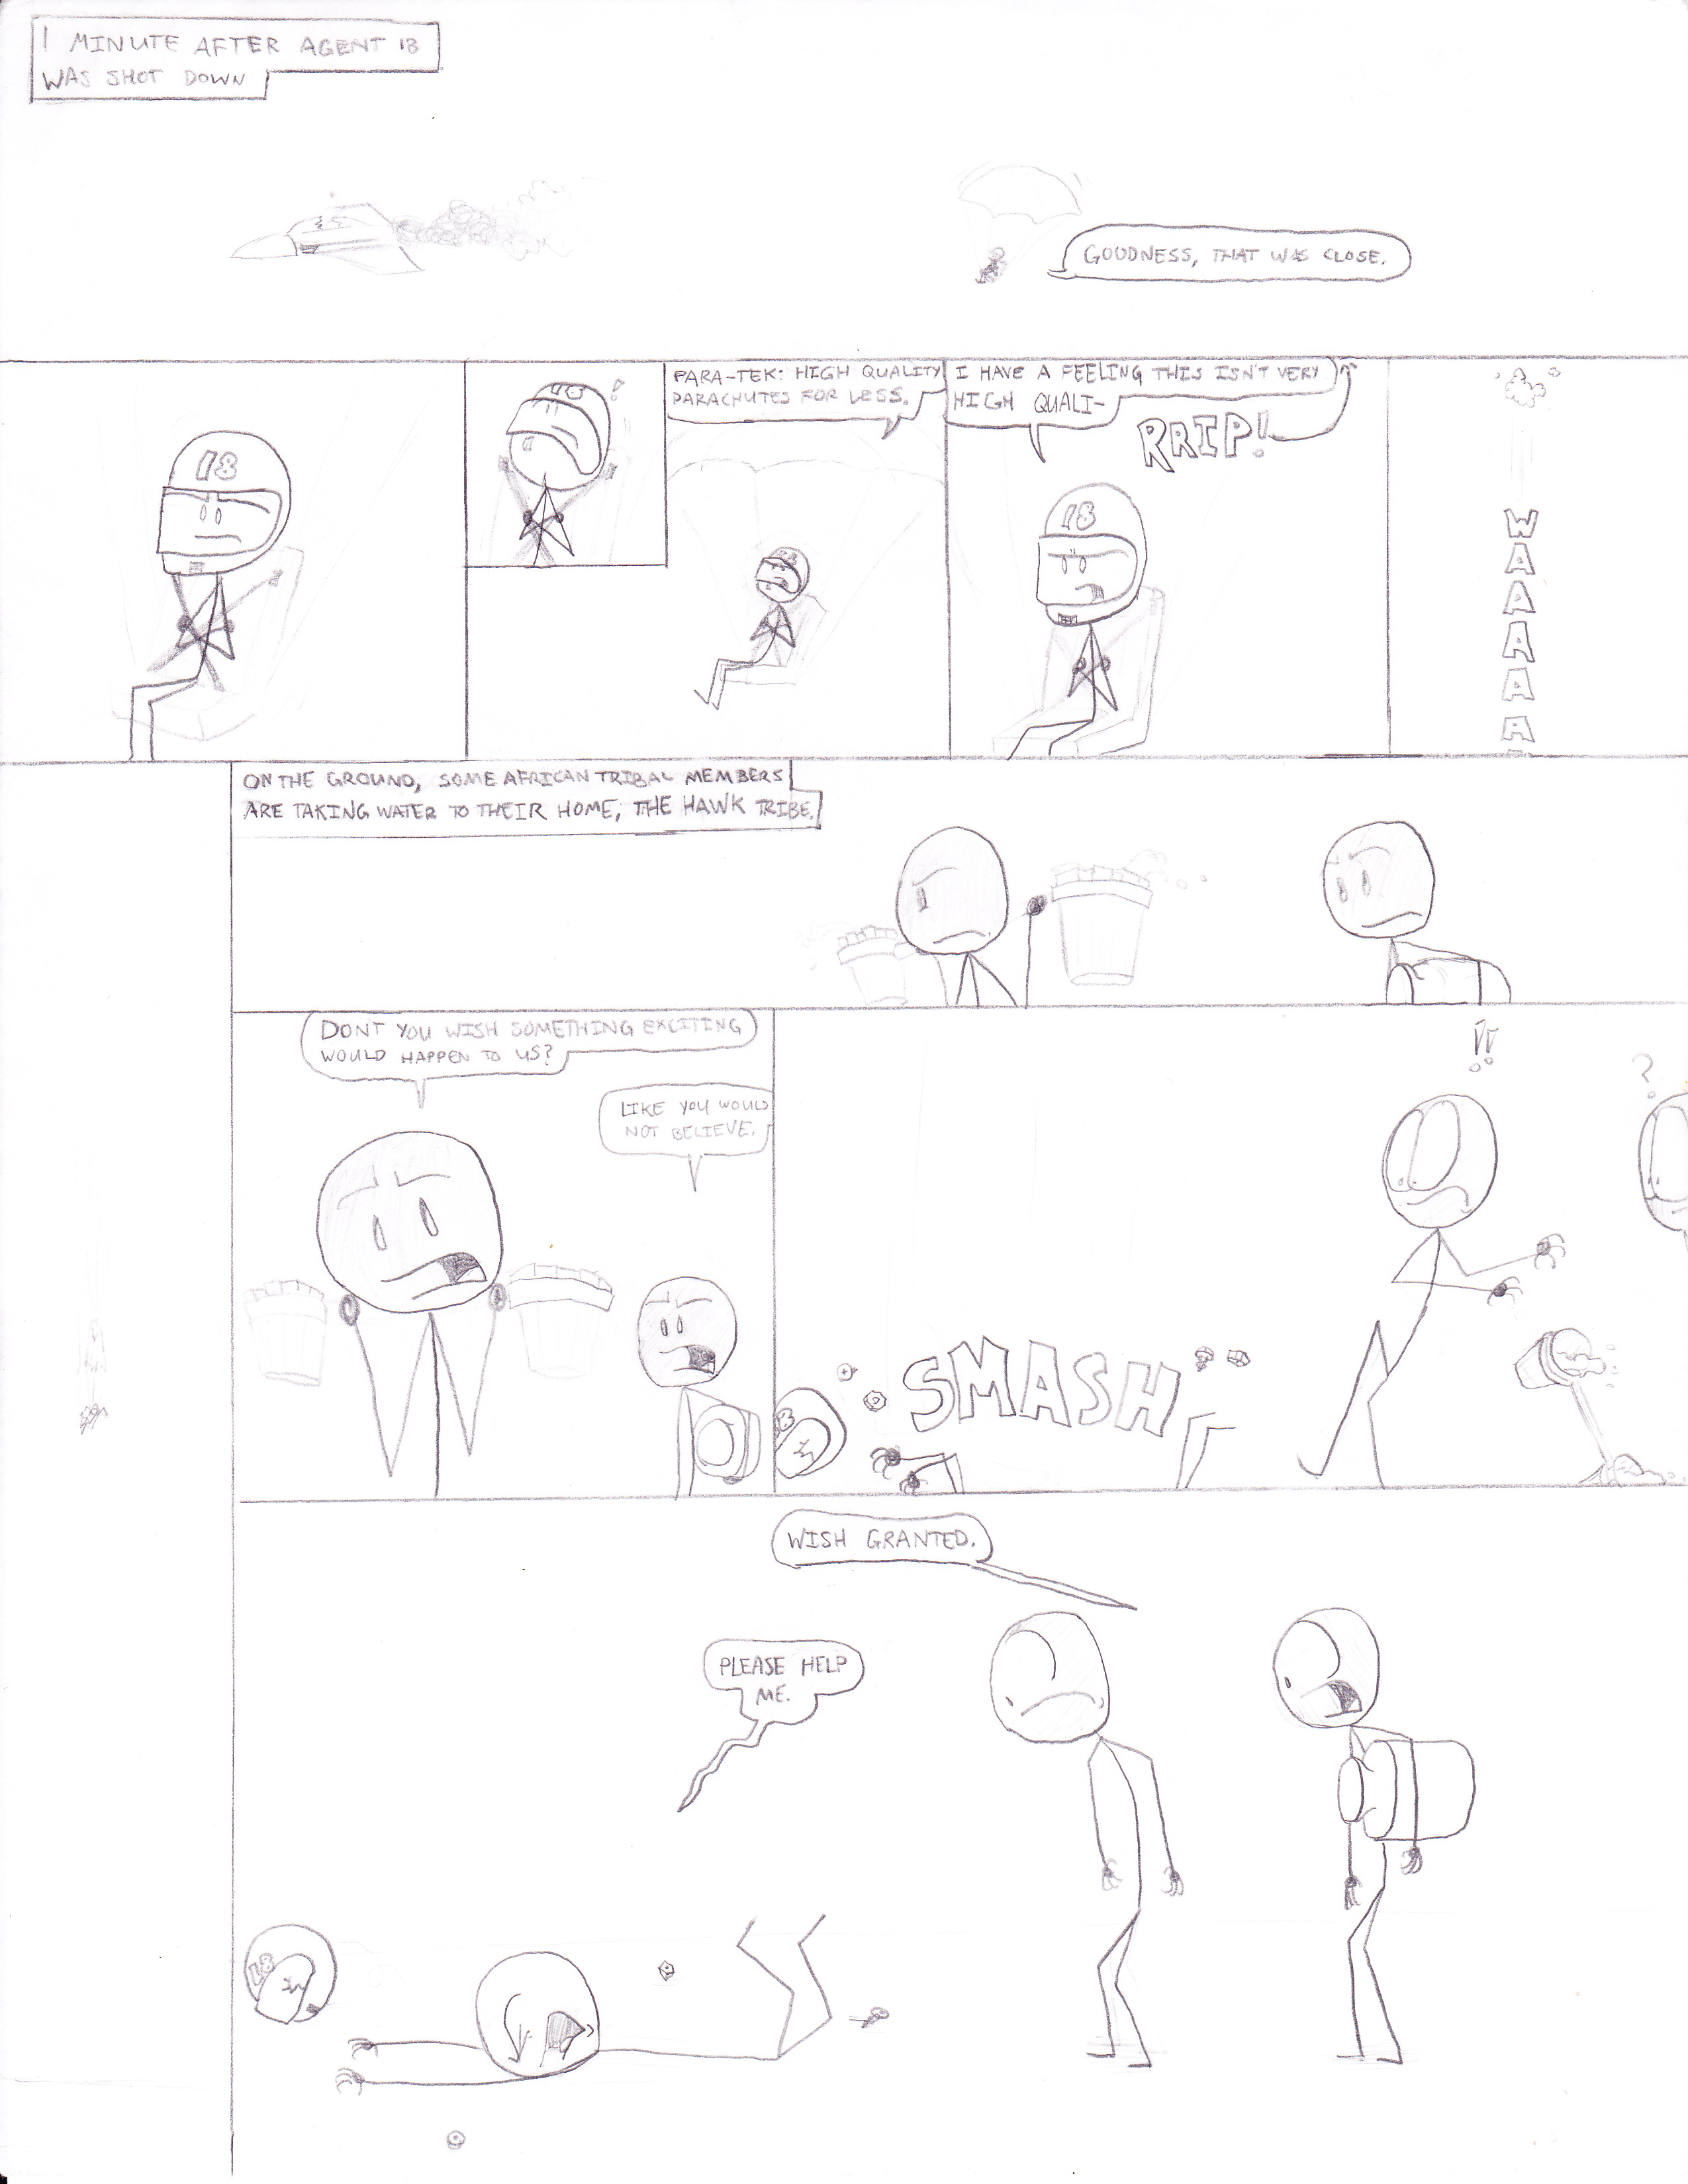 1 MINUTE AFTER AGENT 18
WAS SHOT DOWN
GOODNESS, THAT WAS CLOSE.
18
!
PARA-TEK: HIGH QUALITY
PARACHUTES FOR LESS.
I HAVE A FEELING THIS ISN'T VERY
HIGH QUALI-
RRIP!
18
W
A
A
A
A
A
ON THE GROUND, SOME AFRICAN TRIBAL MEMBERS
ARE TAKING WATER TO THEIR HOME, THE HAWK TRIBE.
DONT YOU WISH SOMETHING EXCITING
WOULD HAPPEN TO US?
LIKE YOU WOULD
NOT BELIEVE.
!!
?
SMASH
WISH GRANTED.
PLEASE HELP
ME.
18